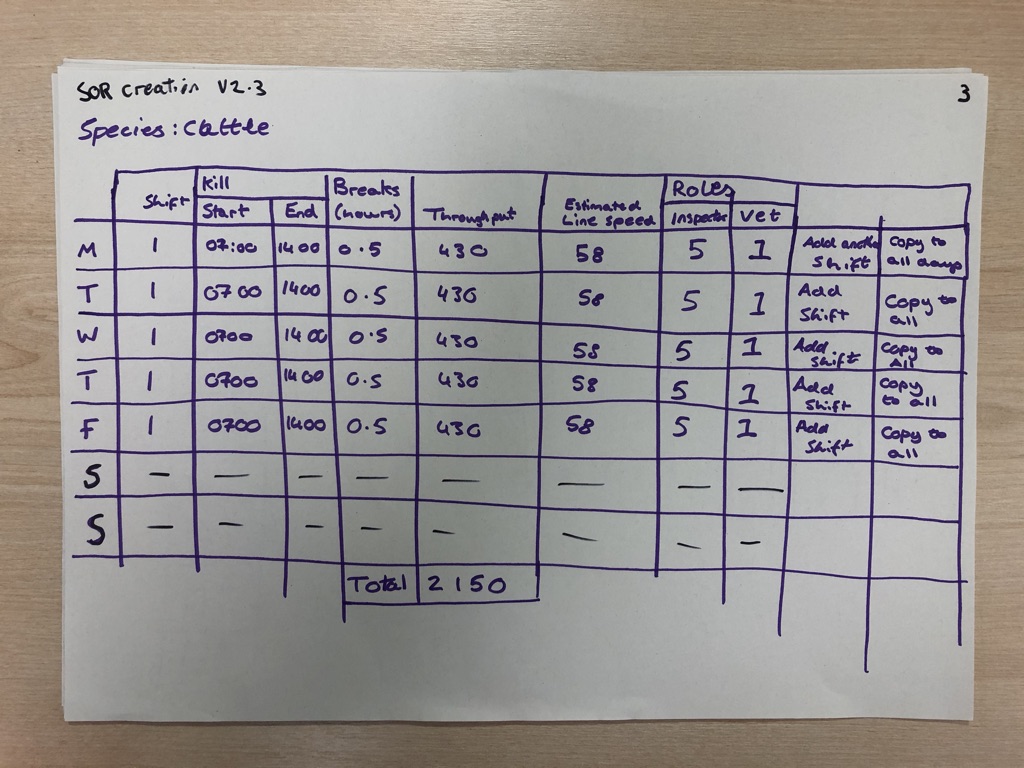 SOR creation V2.3
3
Species: Cattle
Shift Kill Start End Breaks (hours) Throughput Estimated Line speed Roles Inspector Vet
M 1 07:00 1400 0.5 430 58 5 1 Add another Shift Copy to all days
T 1 0700 1400 0.5 430 58 5 1 Add Shift Copy to all
W 1 0700 1400 0.5 430 58 5 1 Add Shift Copy to All
T 1 0700 1400 0.5 430 58 5 1 Add Shift Copy to all
F 1 0700 1400 0.5 430 58 5 1 Add Shift Copy to all
S — — — — — — — —
S — — — — — — — —
Total 2150